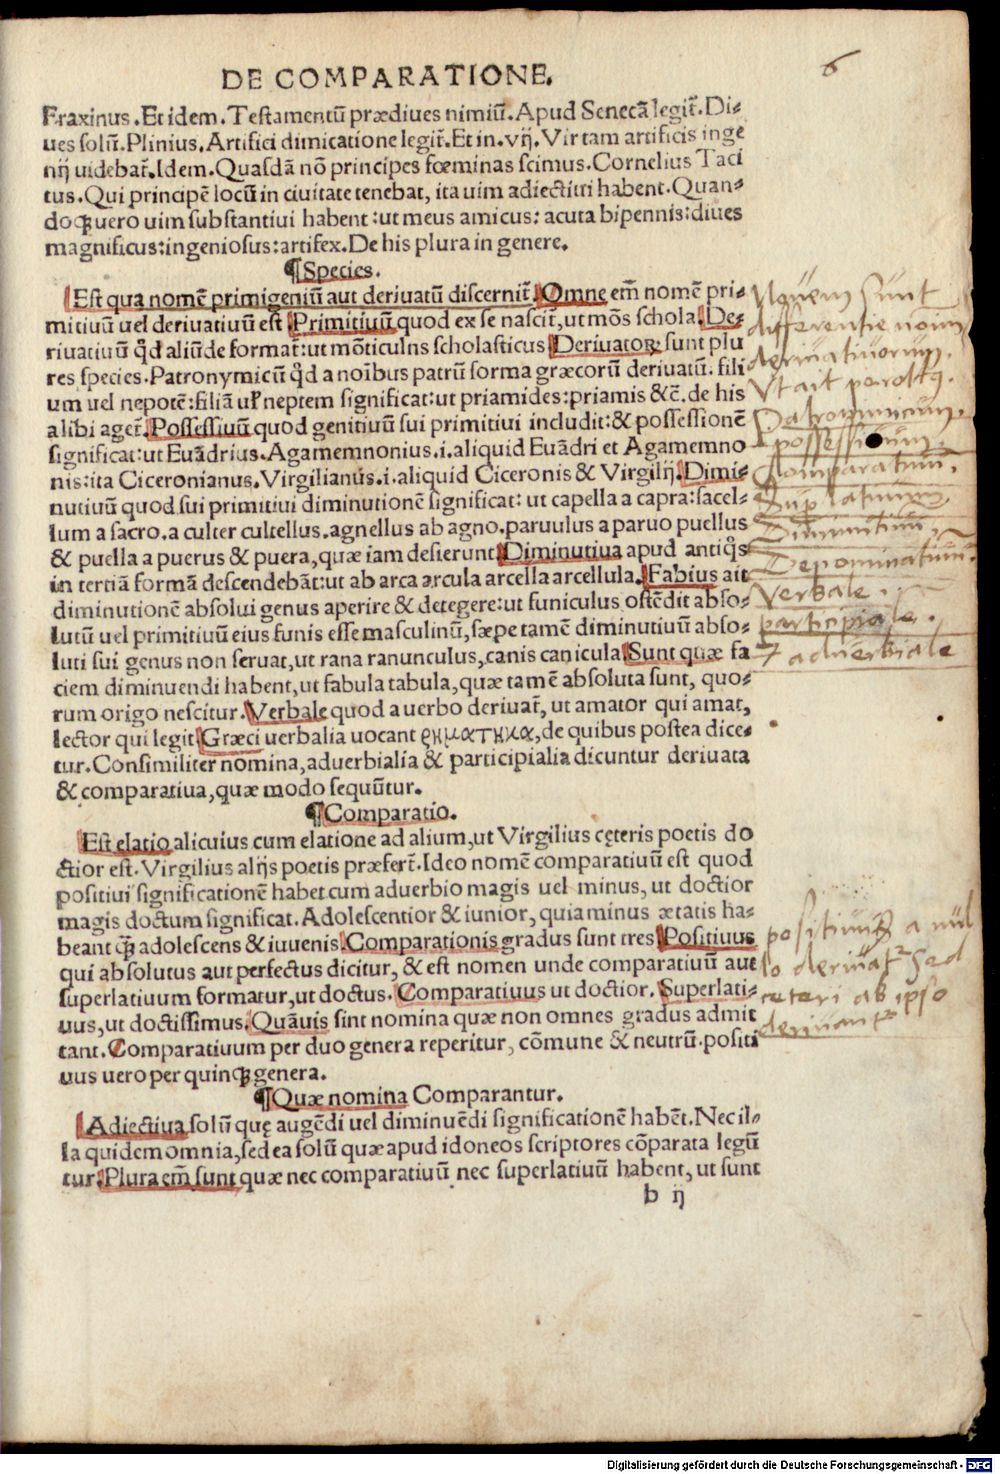 DE COMPARATIONE.
6
Fraxinus. Et idem. Testamentū prædiues nimiū. Apud Senecā legit̄. Di-
ues solū. Plinius. Artifici dimicatione legit̄. Et in. vij. Vir tam artificis inge
nij uidebat̄. Idem. Quasdā nō principes fœminas scimus. Cornelius Taci
tus. Qui principē locū in ciuitate tenebat, ita uim adiectiui habent. Quan-
doqꝫ uero uim substantiui habent: ut meus amicus: acuta bipennis: diues
magnificus: ingeniosus: artifex. De his plura in genere.
¶ Species.
Est qua nomē primigeniū aut deriuatū discernit̄. Omne em̄ nomē pri-
mitiuū uel deriuatiuū est Primitiuū quod ex se nascit̄, ut mōs schola. De-
riuatiuū qd̄ aliūde format̄: ut mōticulns scholasticus Deriuatoꝝ sunt plu
res species. Patronymicū qd̄ a noībus patrū forma græcorū deriuatū. fili
um uel nepotē: filiā uł neptem significat: ut priamides: priamis &c̄. de his
alibi aget̄. Possessiuū quod genitiuū sui primitiui includit: & possessionē
significat: ut Euādrius. Agamemnonius. i. aliquid Euādri et Agamemno
nis: ita Ciceronianus. Virgilianus. i. aliquid Ciceronis & Virgilij. Dimi-
nutiuū quod sui primitiui diminutionē significat: ut capella a capra: sacel-
lum a sacro. a culter cultellus. agnellus ab agno. paruulus a paruo puellus
& puella a puerus & puera, quæ iam desierunt Diminutiua apud antiqͦs
in tertiā formā descendebāt: ut ab arca arcula arcella arcellula. Fabius ait
diminutionē absolui genus aperire & detegere: ut funiculus ostēdit abso-
lutū uel primitiuū eius funis esse masculinū, sæpe tamē diminutiuū abso-
luti sui genus non seruat, ut rana ranunculus, canis canicula Sunt quæ fa
ciem diminuendi habent, ut fabula tabula, quæ tamē absoluta sunt, quo-
rum origo nescitur. Verbale quod a uerbo deriuat̄, ut amator qui amat,
lector qui legit Græci uerbalia uocant ρηματηκα, de quibus postea dice-
tur. Consimiliter nomina, aduerbialia & participialia dicuntur deriuata
& comparatiua, quæ modo sequūtur.
¶ Comparatio.
Est elatio alicuius cum elatione ad alium, ut Virgilius cęteris poetis do
ctior est. Virgilius alijs poetis præfert̄. Ideo nomē comparatiuū est quod
positiui significationē habet cum aduerbio magis uel minus, ut doctior
magis doctum significat. Adolescentior & iunior, quia minus ætatis ha-
beant qꝫ̄ adolescens & iuuenis Comparationis gradus sunt tres Positiuus
qui absolutus aut perfectus dicitur, & est nomen unde comparatiuū aut
superlatiuum formatur, ut doctus. Comparatiuus ut doctior. Superlati-
uus, ut doctissimus. Quāuis sint nomina quæ non omnes gradus admit
tant. Comparatiuum per duo genera reperitur, cōmune & neutrū. positi
uus uero per quinqꝫ genera.
¶ Quæ nomina Comparantur.
Adiectiua solū quę augēdi uel diminuēdi significationē habēt. Nec il-
la quidem omnia, sed ea solū quæ apud idoneos scriptores cōparata legū
tur. Plura em̄ sunt quæ nec comparatiuū nec superlatiuū habent, ut sunt
b ij
Novem sunt
differentie noīm
derivativorum.
Vt ait perottꝰ.
Patronimicum.
possessivum.
Comparativū.
Sup latiuum
Diminutivū,
Denominativū.
Verbale.
participiale.
7 adverbiale
positivus a nul
lo derivat͛ Sed
ceteri ab ipso
derivant͛
Digitalisierung gefördert durch die Deutsche Forschungsgemeinschaft - DFG